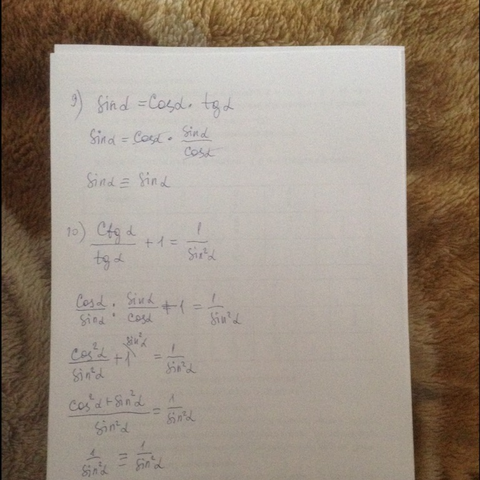 9) sinα = cosα · tgα
sinα = cosα · sinα/cosα
sinα ≡ sinα
10) ctgα/tgα + 1 = 1/sin²α
cosα/sinα : sinα/cosα + 1 = 1/sin²α
cos²α/sin²α + 1 \sin²α = 1/sin²α
cos²α + sin²α/sin²α = 1/sin²α
1/sin²α ≡ 1/sin²α